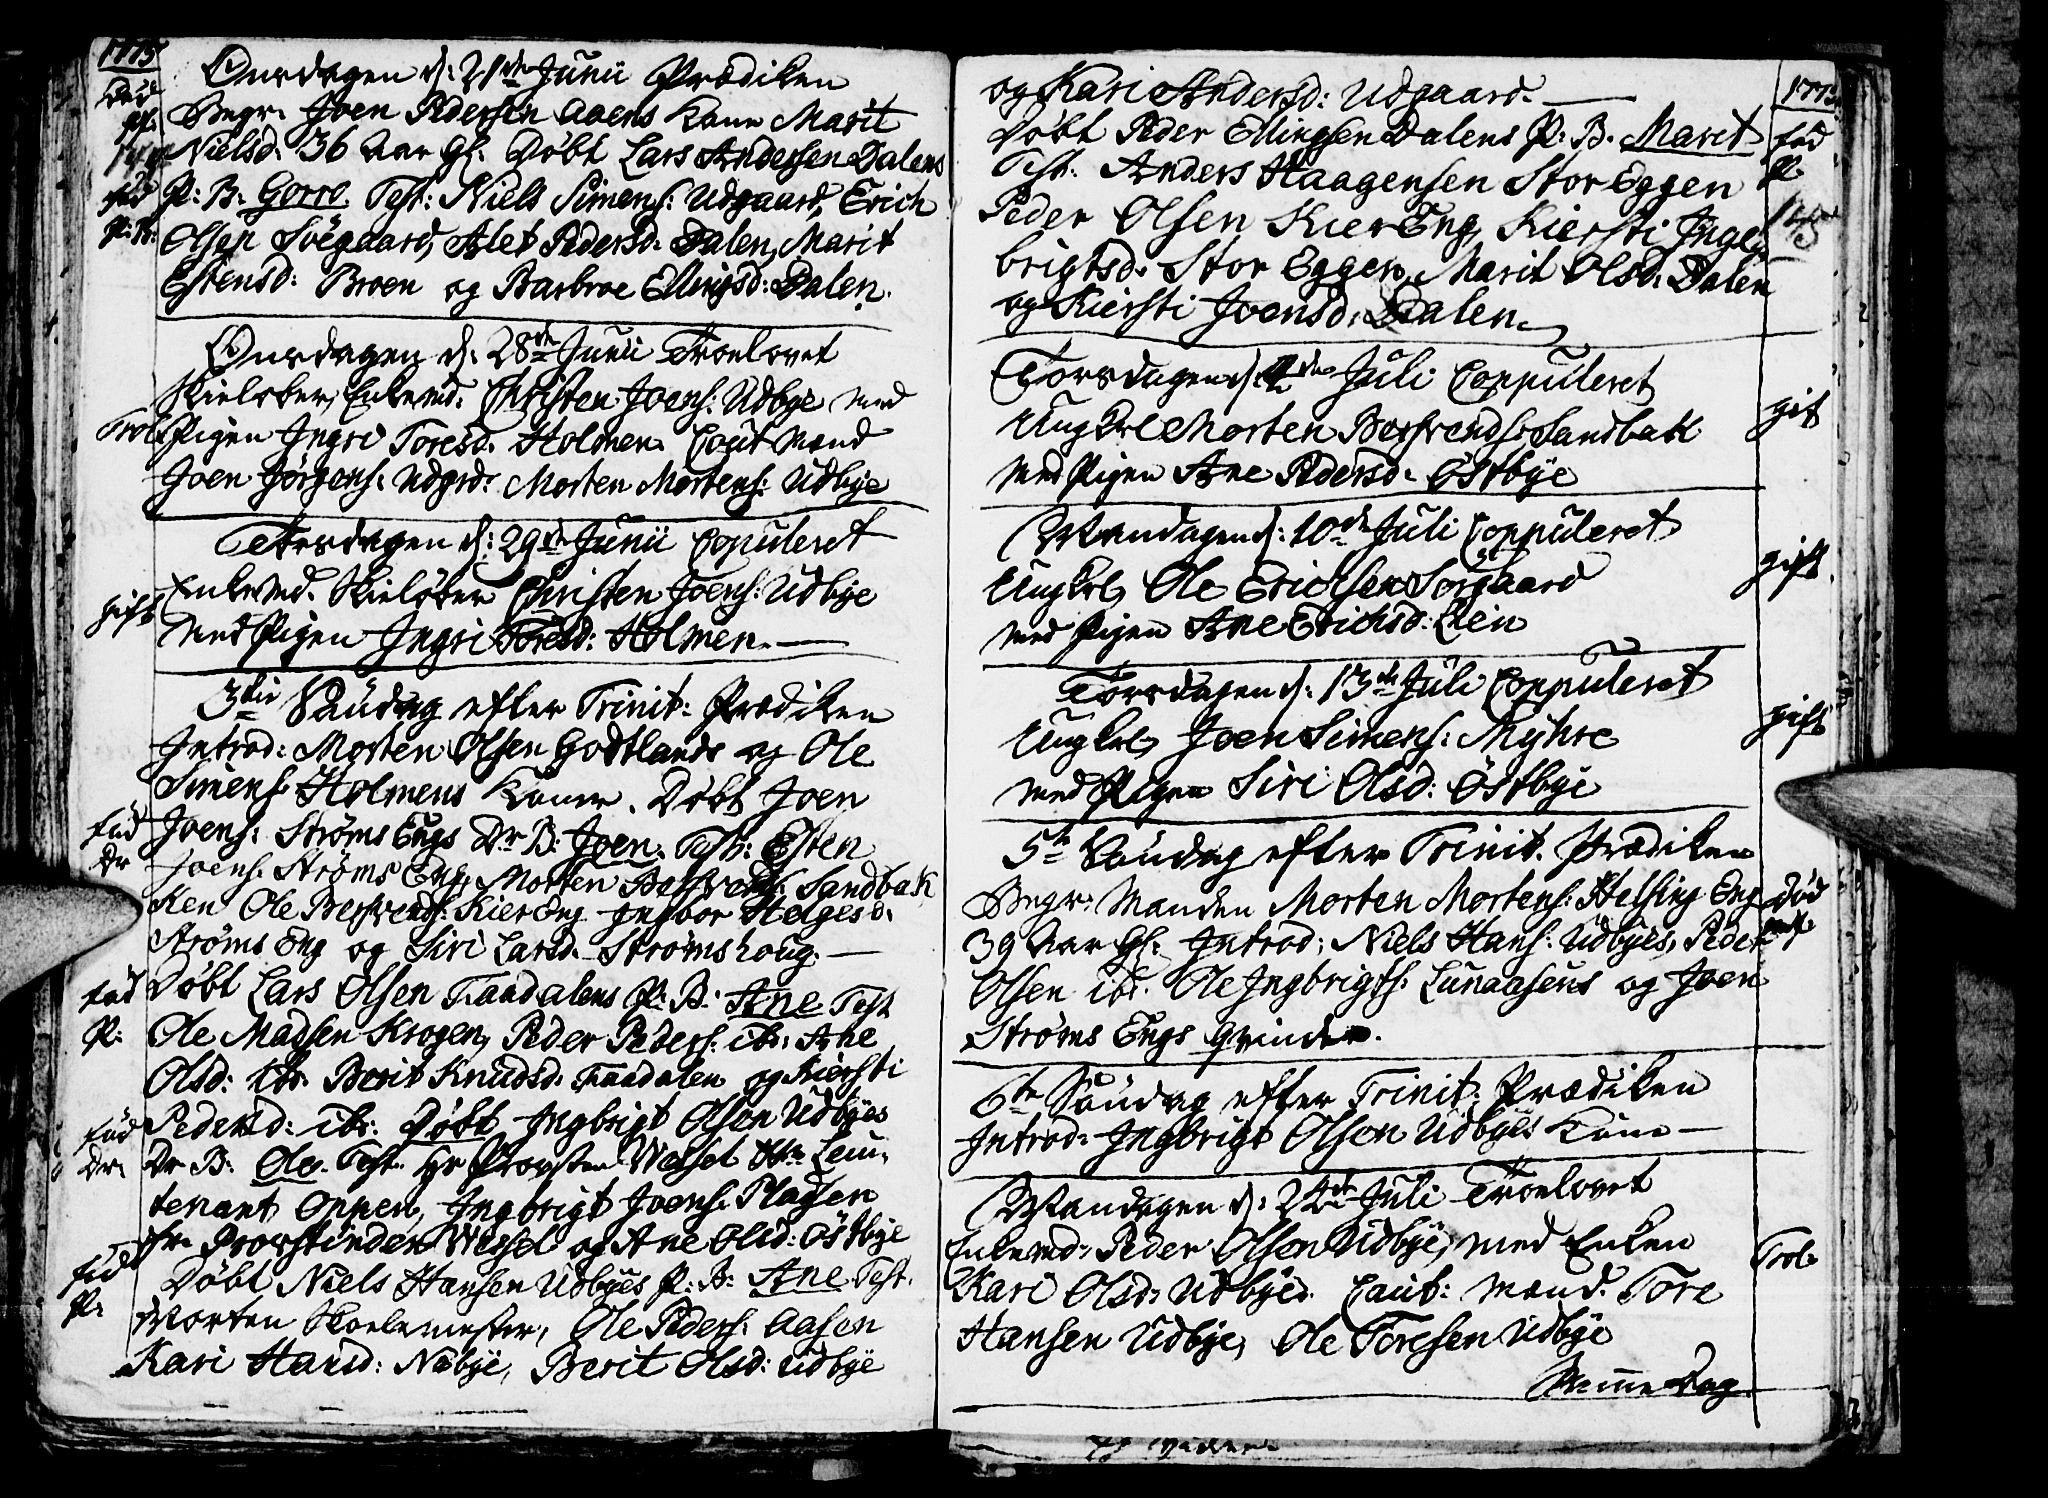 1775
Onsdagen d: 21de Junii Prædiken
død
Begr. Joen Pedersen Aaens Kone Marit
qv.
Nielsd. 36 Aar gl. Døbt Lars Andersen Dalens
fød
P: B. Gorro Test: Niels Simens: Udgaard, Erich
P: B:
Olsen Söegaard, Alet Pedersd. Dalen, Marit
Estensd: Broen og Barbroe Ellingsd: Dalen.
Onsdagen d: 28de Junii Troelovet
Skieløber, Enkemd. Christen Joens: Udbye med
Trol:
Pigen Ingri Toresd. Holmen. Caut Mænd
Joen Jörgens: Udgrd: Morten Mortens: Udbye
Torsdagen d: 29de Junii Copuleret
Enkemd. Skieløber Christen Joens: Udbye
gift
med Pigen Ingri Toresd: Holmen.
3die Søndag efter Trinit: Prædiken
Introd: Morten Olsen Godtlands og Ole
Simens. Holmens Koner. Døbt Joen
fød
Joens: Strøms Engs Dr B: Joen. Test: Esten
Dr
Joens: Strøms Eng, Morten Besfvends: Sandbak
ken Ole Besfvends: Kier Eng Ingbor Helgesd:
Strøms Eng og Siri Larsd. Strømshoug.
fød
Døbt Lars Olsen Faadalens P: B: Ane Test
P:
Ole Madsen Krogen, Peder Peders: ibr: Ane
Olsd: ibr. Berit Knudsd. Faadalen og Kiersti
Pedersd: ibr: Døbt Ingbrigt Olsen Udbyes
fød
Dr:
Dr B: Ole. Test. Hr Provsten Wessel Hr: Leiu,
tenant Oppen, Ingbrigt Joens: Pladsen
fr: Provstinden Wessel og Ane Olsd: Östbye
fød
Døbt Niels Hansen Udbyes P: B: Ane Test.
P:
Morten Skolemester, Ole Peders: Aasen
Kari Hansd: Nøbye, Berit Olsd: Udbye
1775
og Kari Andersd: Udgaard.
Døbt Peder Ellingsen Dalens P: B. Marit
fød
P.
Test: Anders Haagensen Stor Eggen
145
Peder Olsen Kier Eng, Kiersti Inge,
brigtsd. Stor Eggen, Marit Olsd: Dalen
og Kiersti Joensd: Dalen.
Torsdagen d: de Juli Coppuleret
gift
Ung Krl Morten Besfvends: Sandbakk
med Pigen Ane Pedersd. Östbye
Mandagen d: 10de Juli Coppuleret
gift
Ung Krl, Ole Erichsen Sørgaard
med Pigen Ane Erichsd: Lien
Torsdagen d: 13de Juli Coppuleret
gift
Ung Krl, Joen Simens: Myhre
med Pigen Siri Olsd: Östbye
5te Søndag efter Trinit. Prædiken
Begr: Manden Morten Mortens: Helsing Eng
død
39 Aar gl: Introd: Niels Hans: Udbyes, Peder
Olsen ibr. Ole Ingbrigts: Lunaasens og Joen
Strøms Engs Qvinder.
6te Søndag efter Trinit: Prædiken
Introd: Ingbrigt Olsen Udbyes Kone
Mandagen d: 24de Juli Troelovet
Enkemd: Peder Olsen Udbye, med Enken
Trol:
Kari Olsd: Udbye. Caut: Mænd. Tore
Hansen Udbye, Ole Toresen Udbye
Samme Dag